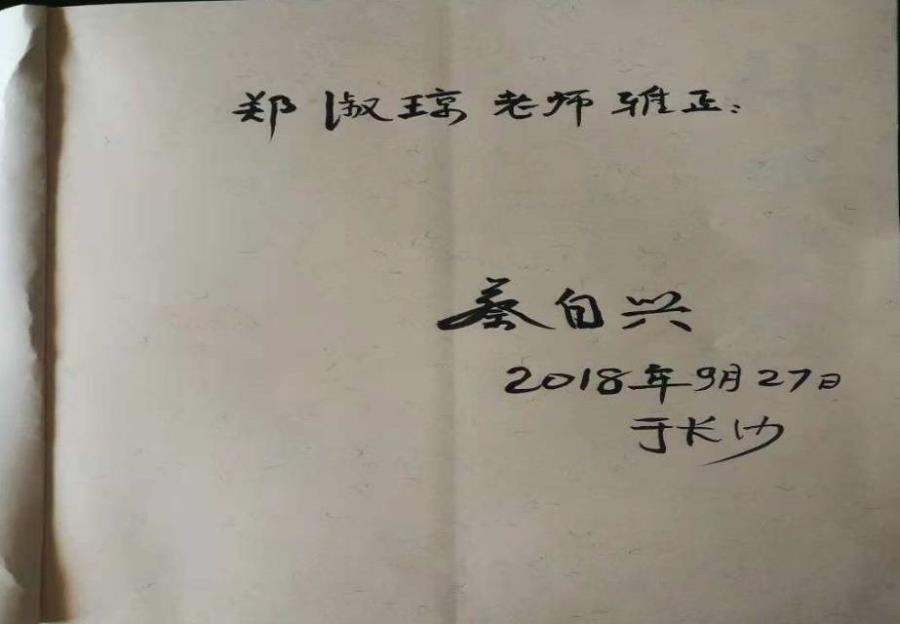 郑淑琼老师雅正：
蔡自兴
2018年9月27日
于长沙